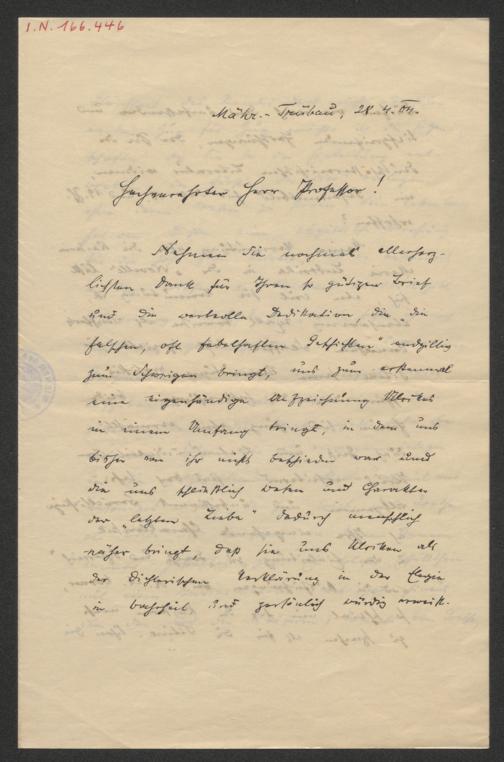 I.N. 166.446
Mähr.-Trübau, 28.4.04.
Hochverehrter Herr Professor!
Nehmen Sie nochmal allerherz-
lichsten Dank für Ihren so gütigen Brief
und die wertvolle Dedikation, die „die
falschen, oft fabelhaften Geschichten" endgiltig
zum Schweigen bringt, uns zum erstenmal
eine eigenhändige Aufzeichnung Ulrikes
in einem Umfang bringt, in dem uns
bisher von ihr nichts beschieden war und
die uns schließlich Wesen und Charakter
der „letzten Liebe" dadurch menschlich
näher bringt, daß sie uns Ulriken als
der dichterischen Verklärung in der Elegie
in Wahrheit und persönlich würdig erweist.